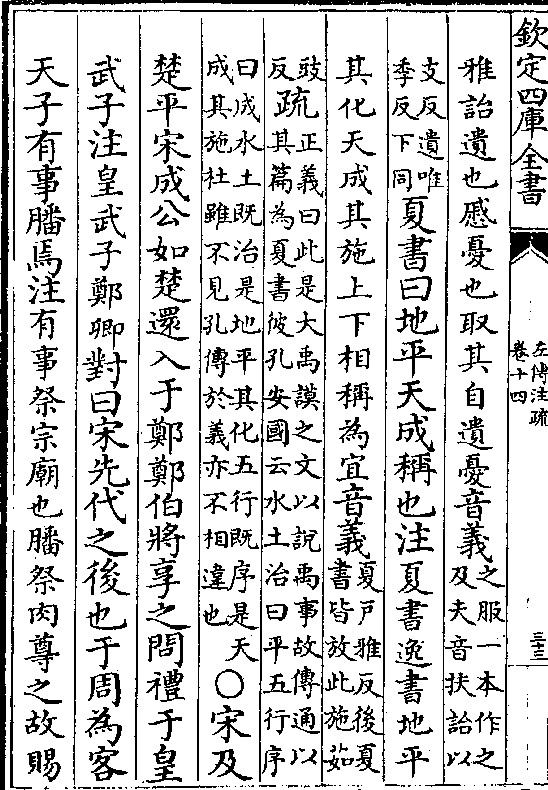 欽定四庫全書
左傳注疏
卷十四
雅詒遺也慼憂也取其自遺憂音義之服一本作之
及夫音扶詒以
支反遺唯
季反下同夏書曰地平天成稱也注夏書逸書地平
其化天成其施上下相稱為宜音義夏戸雅反後夏
書皆放此施茹
豉
反疏正義曰此是大禹謨之文以說禹事故傳通以
其篇為夏書彼孔安國云水土治曰平五行序
曰成水土既治是地平其化五行既序是天
成其施杜雖不見孔傳於義亦不相違也○宋及
楚平宋成公如楚還入于鄭鄭伯將享之問禮于皇
武子注皇武子鄭卿對曰宋先代之後也于周為客
天子有事膰焉注有事祭宗廟也膰祭肉尊之故賜